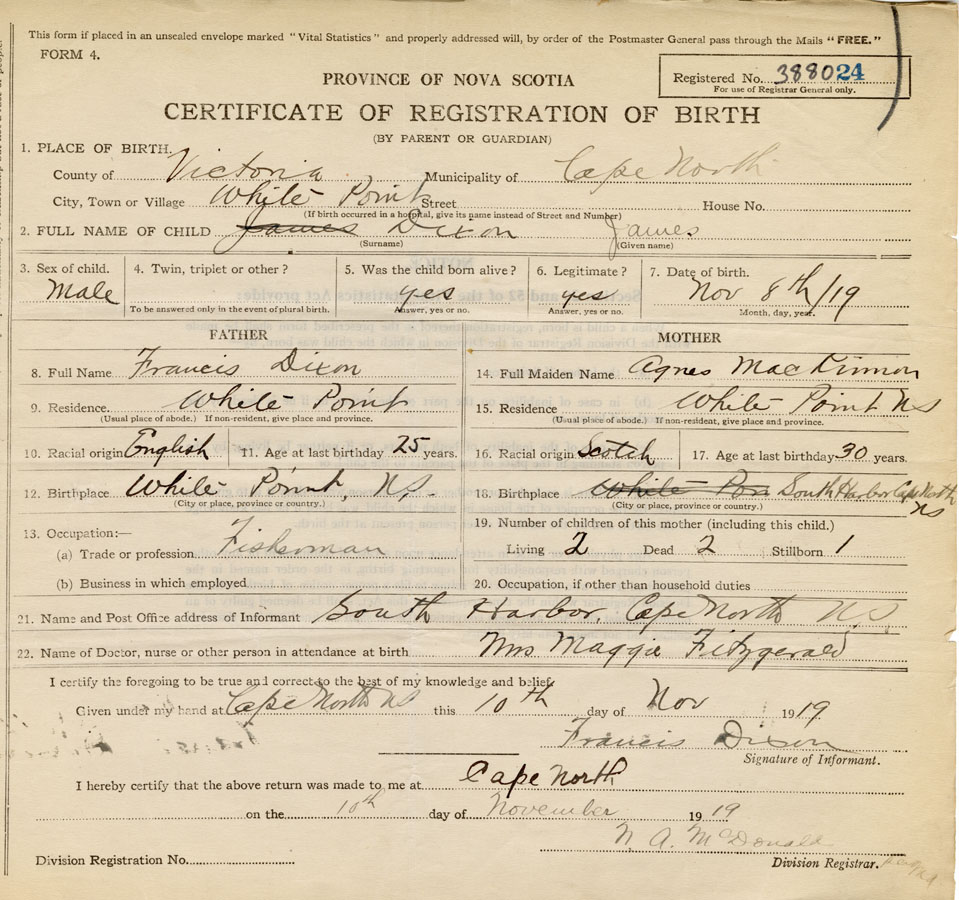 This form if placed in an unsealed envelope marked "Vital Statistics" and properly addressed will, by order of the Postmaster General pass through the Mails "FREE."
FORM 4.
PROVINCE OF NOVA SCOTIA
Registered No. 388024
For use of Registrar General only.
CERTIFICATE OF REGISTRATION OF BIRTH
(BY PARENT OR GUARDIAN)
1. PLACE OF BIRTH.
County of Victoria Municipality of Cape North
City, Town or Village White Point Street House No.
(If birth occurred in a hospital, give its name instead of Street and Number)
2. FULL NAME OF CHILD James Dixon James
(Surname) (Given name)
3. Sex of child. 4. Twin, triplet or other? 5. Was the child born alive? 6. Legitimate? 7. Date of birth.
Male yes yes Nov 8th/19
To be answered only in the event of plural birth. Answer, yes or no. Answer, yes or no. Month, day, year.
FATHER MOTHER
8. Full Name Francis Dixon 14. Full Maiden Name Agnes MacKinnon
9. Residence. White Point 15. Residence White Point NS
(Usual place of abode.) If non-resident, give place and province. (Usual place of abode.) If non-resident, give place and province.
10. Racial origin English 11. Age at last birthday 25 years. 16. Racial origin Scotch 17. Age at last birthday 30 years.
12. Birthplace White Point, NS. 18. Birthplace White Poin South Harbor Cape North NS
(City or place, province or country.) (City or place, province or country.)
13. Occupation:— 19. Number of children of this mother (including this child.)
(a) Trade or profession Fisherman Living 2 Dead 2 Stillborn 1
(b) Business in which employed 20. Occupation, if other than household duties
21. Name and Post Office address of Informant South Harbor, Cape North N.S.
22. Name of Doctor, nurse or other person in attendance at birth Mrs Maggie Fitzgerald
I certify the foregoing to be true and correct to the best of my knowledge and belief.
Given under my hand at Cape North NS this 10th day of Nov 1919
Francis Dixon
Signature of Informant.
I hereby certify that the above return was made to me at Cape North
on the 10th day of November 1919
N. A. McDonald
Division Registration No. Division Registrar.